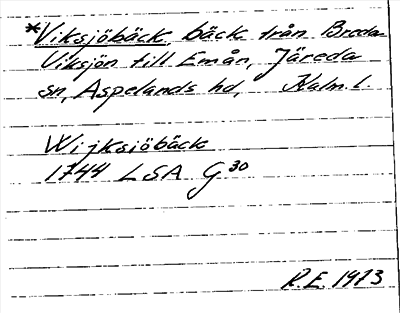 *Viksjöbäck, bäck från Breda-
Viksjön till Emån, Järeda
sn, Aspelands hd, Kalm. l.
Wijksiöbäck
1744 LSA G 30
R.E. 1973